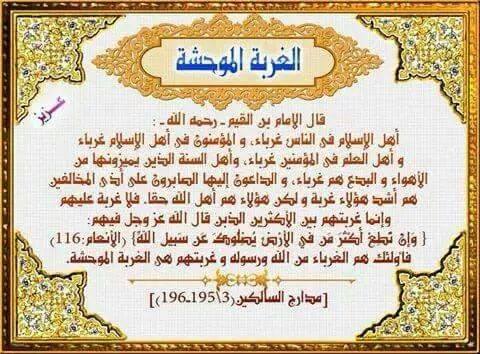 الغربة الموحشة
عزيز
قال الإمام بن القيم - رحمه الله - :
أهل الإسلام فى الناس غرباء ، و المؤمنون فى أهل الإسلام غرباء
و أهل العلم فى المؤمنين غرباء ، وأهل السنة الذين يميزونها من
الأهواء و البدع هم غرباء ، و الداعون إليها الصابرون على أذى المخالفين
هم أشد هؤلاء غربة و لكن هؤلاء هم أهل الله حقا ، فلا غربة عليهم
وإنما غربتهم بين الأكثرين الذين قال الله عز وجل فيهم:
{ وَإِن تُطِعْ أَكْثَرَ مَن فِي الأَرْضِ يُضِلُّوكَ عَن سَبِيلِ اللّهِ} (الأنعام:116)
فأولئك هم الغرباء من الله ورسوله و غربتهم هى الغربة الموحشة.
[مدارج السالكين(3\195ـ196)]